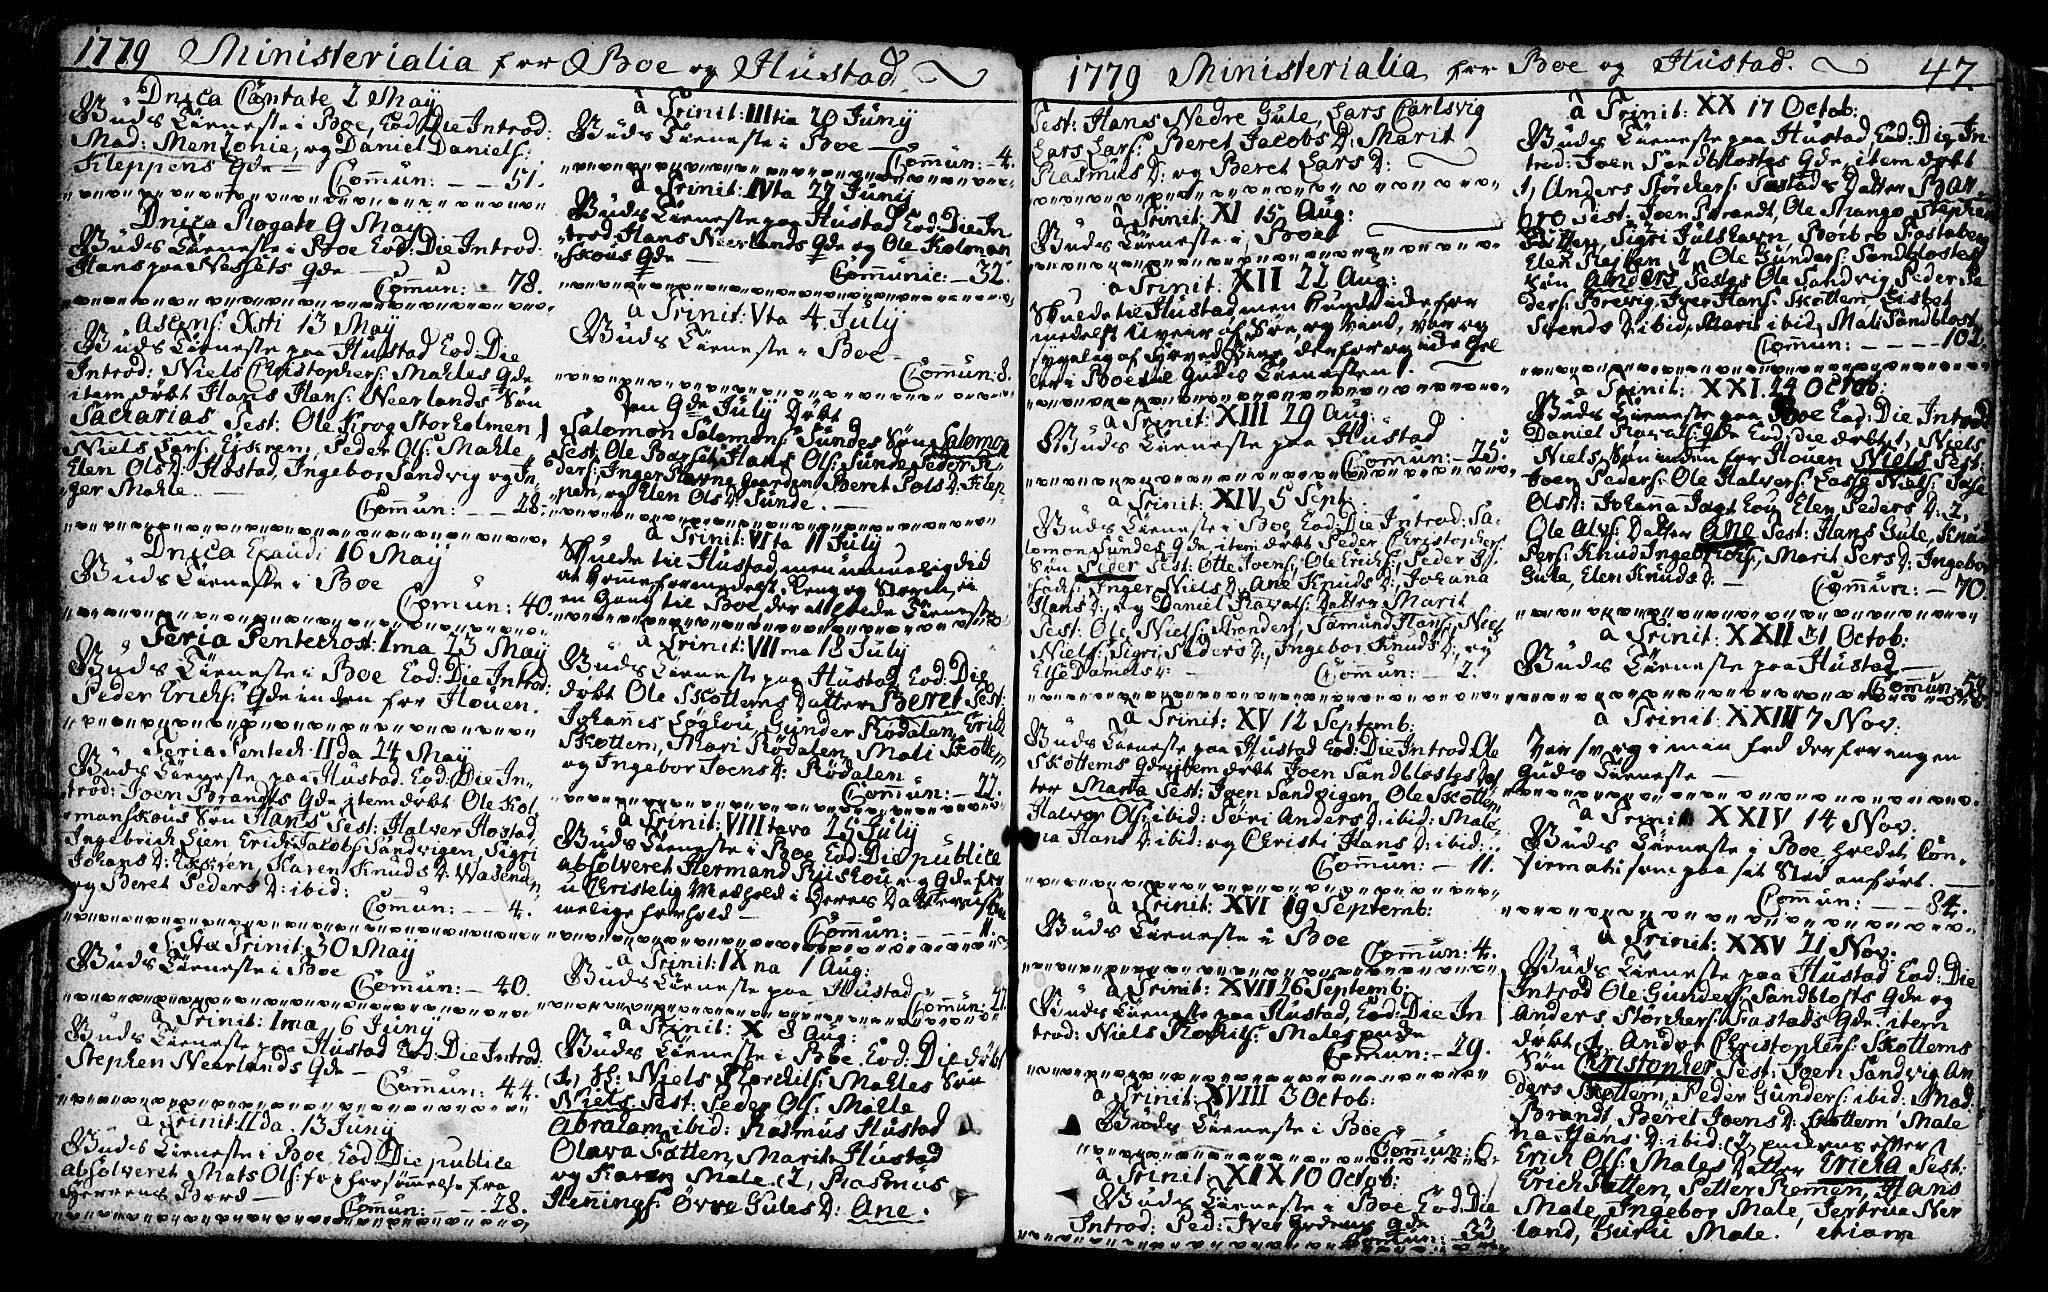 1779 Ministerialia for Boe og Hustad.
Dnica Cantate 2 May
Guds Tieneste i Boe, Eod: Die Introd:
Mad: Menzonie, og Daniel Daniels:
Kleppens Qde — Comun: — — 51.
Dnica Rogate 9 May
Guds Tieneste i Boe Eod: Die Introd.
Hans paa Nessets Qde —
Comun: — 78.
Ascens: Xsti 13 May
Guds Tieneste paa Hustad Eod: Die
Introd: Niels Christophers: Mahles Qde
item døbt Hans Hans: Neerlands Søn
Sacharias Test: Ole Krog Storholmen
Niels Lars: Ejskrem, Peder Ols: Mahle,
Elen Ols D: Hostad, Ingebor Sandvig og In-
ger Mahle. —
Comun: — — 28.
Dnica Exaudi 16 May
Guds Tieneste i Boe
Comun: 40.
Feria Pentechost: Ima 23 May
Guds Tieneste i Boe Eod: Die Introd:
Peder Erichs: Qde inden for Houen.
Feria Pentech: IIda 24 May
Guds Tieneste paa Hustad. Eod: Die In-
trod: Joen Brandts Qde item døbt Ole Kol-
manskous Søn Hans Test: Halver Hostad,
Ingebrich Lien, Erich Jacobs: Sandvigen, Sigri
Johans D: Ejskrem, Karen Knuds D: Wadenden,
og Beret Peders D: ibid:
Comun: — — 4.
Festo Trinit: 30 May
Guds Tieneste i Boe
Comun: — 40.
a Trinit: Ima 6 Junij
Guds Tieneste paa Hustad Eod: Die Introd.
Stephen Neerlands Qde —
Comun: — — 44.
a Trinit: IIda 13 Junij
Guds Tieneste i Boe, Eod: Die publice
absolveret Mats Ols: for forsømmelse fra
Herrens Bord —
Comun: — — — 28.
a Trinit: IIItia 20 Junij
Guds Tieneste i Boe —
Comun: — 4.
a Trinit: IVta 27 Junij
Guds Tieneste paa Hustad Eod: Die In-
trod Hans Neerlands Qde og Ole Kolman-
skous Qde —
Comunic: — 32.
a Trinit: Vta 4 July
Guds Tieneste i Boe —
Comun: 8.
Den 9de July Døbt
Salomon Salomons: Sundes Søn Salomon
Test: Ole Hans Ols: Sunde Peder
ders: Inger Beret Pols D: Klep-
pen, og Elen Ols D: Sunde. —
a Trinit: VIta 11 July
Skulde til Hustad, men umuelig did
at komme formedelst Regn og Storm, ei
en Gang til Boe, der at holde Tieneste
a Trinit: VIIma 18 July
Guds Tieneste paa Hustad Eod: Die
døbt Ole Skottems Datter Beret Test:
Johanis Løghou, Gunder Rødalen, Erich
Skottem, Mari Rødalen, Mali Skottem
og Ingebor Joens D: Rødalen
Comun: — 22.
a Trinit: VIIItava 25 July
Guds Tieneste i Boe Eod: Die publice
absolveret Hermand Ruskou og Qde for
u Christelig Medhold i Deres Datters
melige forhold —
Comun: — — — 11.
a Trinit: IXna 1 Aug:
Guds Tieneste paa Hustad
Comun: 27.
a Trinit: X 8 Aug:
Guds Tieneste i Boe Eod: Die døbt
1, Niels Storchils: Mahles Søn
Niels. Test: Peder Ols: Mahle
Abraham ibid: Rasmus Hustad
Olava Tøtten, Marit Hustad
og Karen Male. 2, Rasmus
Hennings: Øvre Gules D: Ane.
1779 Ministerialia for Boe og Hustad. 47.
Test: Hans Nedre Gule, Lars Carlsvig
Lars Lars: Beret Jacobs D: Marit
Rasmus D: og Beret Lars D:
a Trinit: XI 15 Aug:
Guds Tieneste i Boe
a Trinit: XII 22 Aug:
Skulde til Hustad, men kunde ide for
medelst Uveir af Søe og Vind, var og
sygelig af derfor og ide hel
ler i Boe Guds Tienesten.
a Trinit: XIII 29 Aug:
Guds Tieneste paa Hustad
Comun: — 25.
a Trinit: XIV 5 Sept:
Guds Tieneste i Boe Eod: Die Introd: Sa-
lomon Sundes Qde, item døbt Peder Christophers:
Søn Peder Test: Otte Joens: Ole Erichs: Peder
Inger Niels D: Ane Knuds D: Johana
Hans D: og Daniel Datter Marit
Test: Ole Niels: Strander, Samund Hans: Niels
Niels: Sigri Peders D:, Ingebor Knuds D: og
Else Daniels D: — Comun: — 2.
a Trinit: XV 12 Septemb:
Guds Tieneste paa Hustad Eod: Die Introd: Ole
Skottems Qde item døbt Joen Sandblostes Dat
ter Marta Test: Joen Sandvigen, Ole Skottem
Halvor Ols: ibid: Søri Anders D: ibid: Male-
na Hans D: ibid: og Christi Hans D: ibid:
Comun: — 11.
a Trinit: XVI 19 Septemb:
Guds Tieneste i Boe
Comun: 4.
a Trinit: XVII 26 Septemb:
Guds Tieneste paa Hustad, Eod: Die In
trod: Niels Males
Comun: — 29.
a Trinit: XVIII 3 Octob:
Guds Tieneste i Boe
Comun: 6.
a Trinit: XIX 10 Octob:
Guds Tieneste i Boe Eod: Die
Introd: Ped: Iver Qde
Comun: — 33.
a Trinit: XX 17 Octob:
Guds Tieneste paa Hustad, Eod: Die In-
trod: Joen Sandblostes Qde, item døbt
1, Anders Storkers: Tastads Datter Bar-
bro Test: Joen Brandt, Ole Mango Stephen
Tøtten, Sigri Julshavn, Borbro Fostaberg
Elen 2, Ole Gunders: Sandblosten
Søn Anders Testes Ole Sandvig Peder Pe
ders: Brevig, Iver Hans: Skottem Lisbet
Svends D: ibid, Marit ibid, Mali Sandblost
Comun: — — — 102.
a Trinit: XXI 24 Octob:
Guds Tieneste paa Boe Eod: Die Introd
Daniel Qde Eod, die døbtet, Niels
Niels: Søn inden for Houen Niels Test:
Joen Peders: Ole Halvers: Lasse Niels:
Ols D: Johanna Elen Peders D: 2,
Ole Alvs: Datter Ane Test: Hans Gule, Knud
Pers: Knud Ingebrichs: Marit Pers D: Ingebor
Gule, Elen Knuds D: —
Comun: — 70.
a Trinit: XXII 31 Octob:
Guds Tieneste paa Hustad —
Comun: 58
a Trinit: XXIII 7 Nov:
Var syg i min fod derfor ingen
Guds Tieneste —
a Trinit XXIV 14 Nov:
Guds Tieneste i Boe holdet Con-
firmatisom paa sit Sted anført. —
Comun: — — 84.
a Trinit: XXV 21 Nov:
Guds Tieneste paa Hustad Eod: Die
Introd Ole Gunders: Sandblosts Qde og
Anders Storkers: Tastads Qde, item
døbt 1, Andor Christophers: Skottems
Søn Christopher Test: Joen Sandvig An
ders Skottem, Peder Gunders: ibid: Mad:
Brandt, Beret Joens D: Skottem Male
na Hans D: ibid: 2,
Erich Ols: Males Datter Ericha Test:
Erich Tøtten, Petter Remen, Hans
Male Ingebor Male, Jertrue Ner
land, Guru Male. etiam